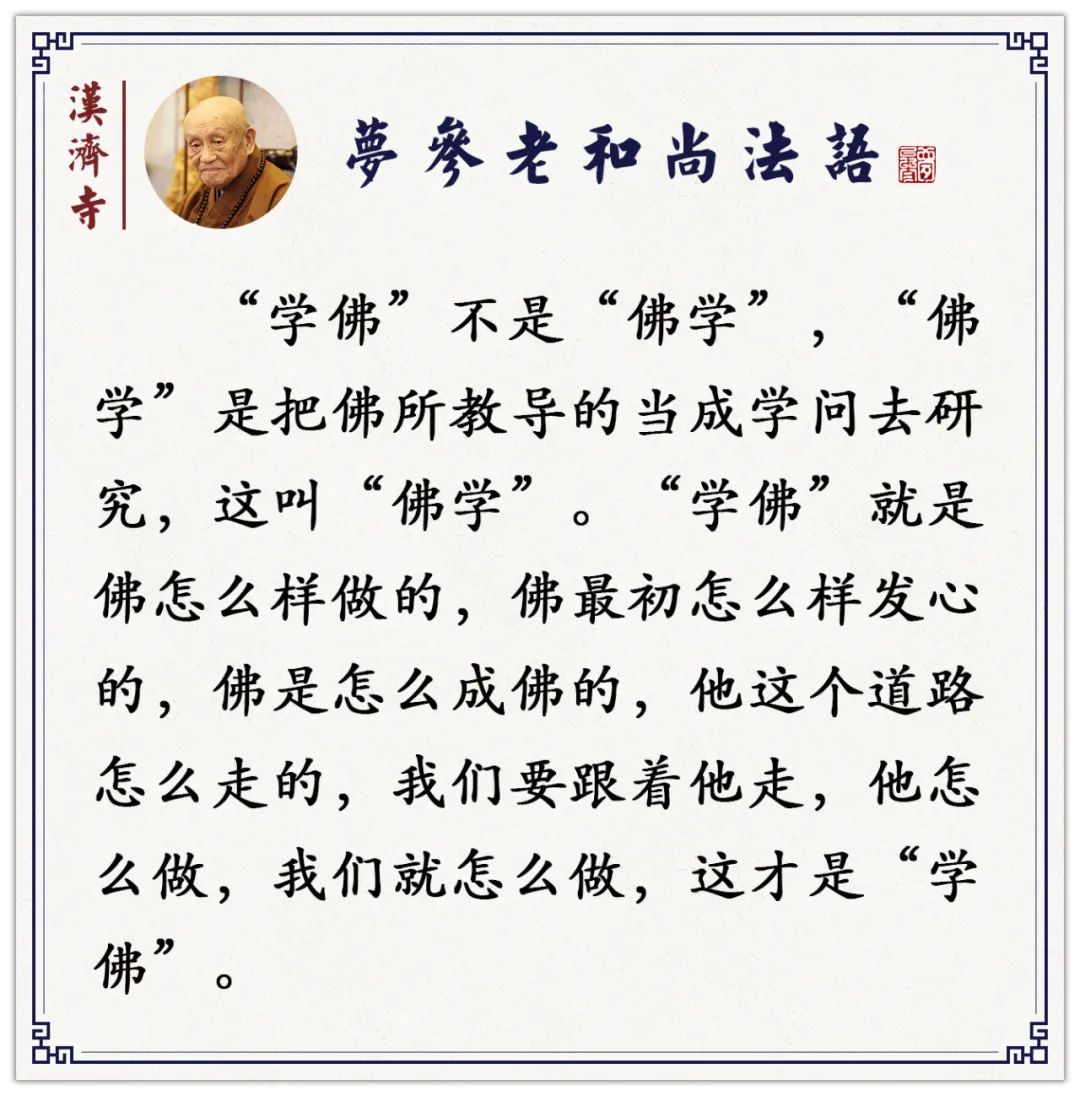 漢濟寺
夢參老和尚法語
“学佛”不是“佛学”，“佛
学”是把佛所教导的当成学问去研
究，这叫“佛学”。“学佛”就是
佛怎么样做的，佛最初怎么样发心
的，佛是怎么成佛的，他这个道路
怎么走的，我们要跟着他走，他怎
么做，我们就怎么做，这才是“学
佛”。